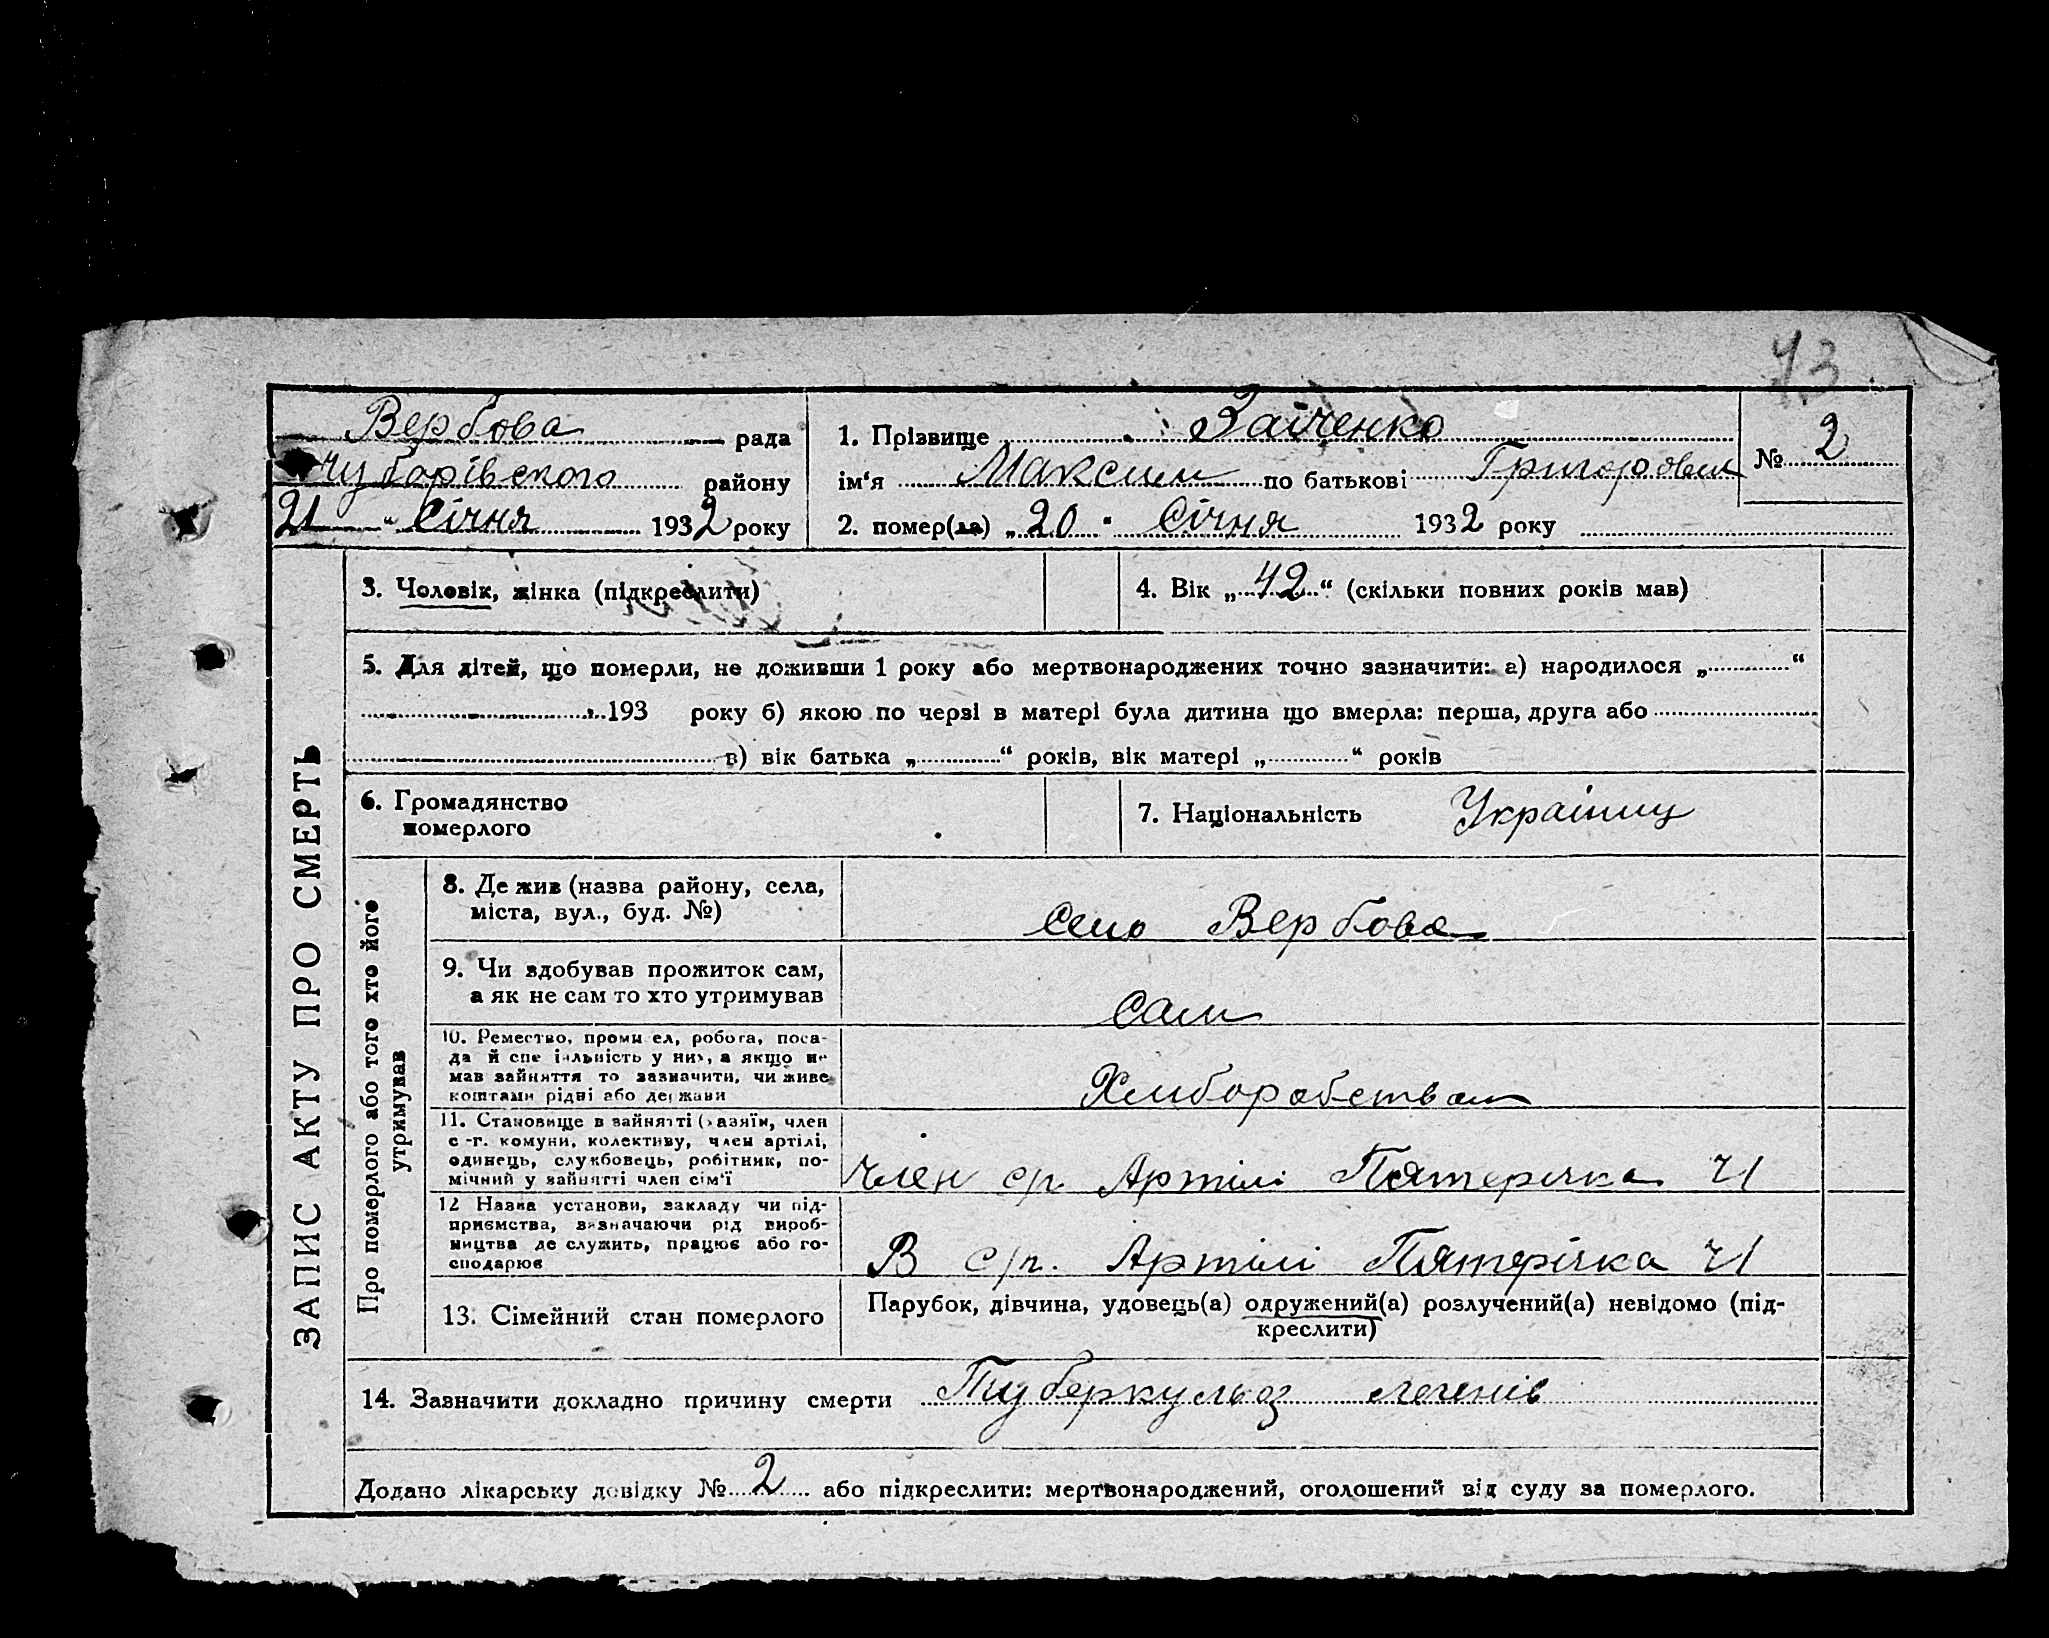 43
Вербова рада
Чубарівського району
21 " Січня 1932 року
1. Прізвище Зайченко
ім'я Максим по батькові Григорович
№ 2
2. помер(ла) „20" Січня 1932 року
ЗАПИС АКТУ ПРО СМЕРТЬ
3. Чоловік, жінка (підкреслити)
4. Вік „42" (скільки повних років мав)
5. Для дітей, що померли, не доживши 1 року або мертвонароджених точно зазначити: а) народилося „ "
193 року б) якою по черзі в матері була дитина що вмерла: перша, друга або
в) вік батька „ " років, вік матері „ " років
6. Громадянство
померлого
7. Національність Україниц
Про померлого або того хто його
утримував
8. Де жив (назва району, села,
міста, вул., буд. №)
село Вербова
9. Чи здобував прожиток сам,
а як не сам то хто утримував
сам
10. Ремество, промисел, робота, поса-
да й спеціяльність у них, а якщо не
мав зайняття то зазначити, чи живе
коштами рідні або держави
Хлиборобством
11. Становище в зайнятті (хазяїн, член
с.-г. комуни, колективу, член артілі,
одинець, службовець, робітник, по-
мічний у зайнятті член сім'ї
Член с/г. Артілі Пятерічка Ч1
12 Назва установи, закладу чи під-
приємства, зазначаючи рід вироб-
ництва де служить, працює або го-
сподарює
В с/г. Артілі Пятерічка Ч1
13. Сімейний стан померлого
Парубок, дівчина, удовець(а) одружений(а) розлучений(а) невідомо (під-
креслити)
14. Зазначити докладно причину смерти Туберкульоз легенів
Додано лікарську довідку № 2 або підкреслити: мертвонароджений, оголошений від суду за померлого.